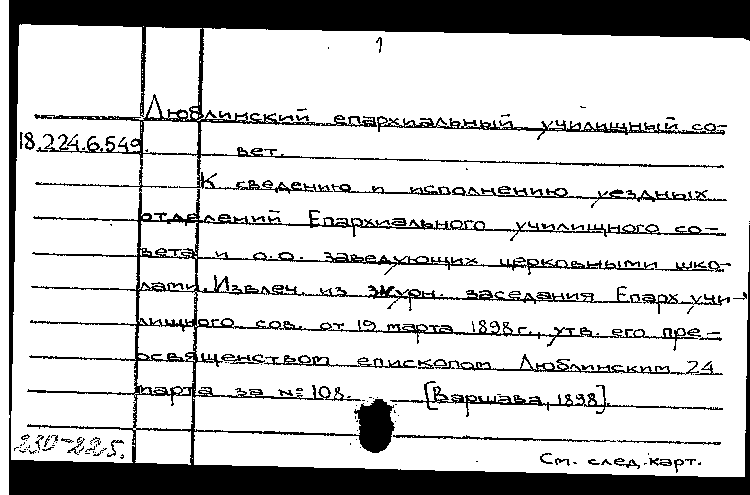 1
Люблинский епархиальный училищный со-
18.224.6.549. вет.
К сведению и исполнению уездных
отделений Епархиального училищного со-
вета и о.о. заведующих церковными шко-
лами. Извлеч. из журн. заседания Епарх. учи-
лищного сов. от 19 марта 1898 г., утв. его пре-
освященством епископом Люблинским 24
марта за № 108. [Варшава, 1898].
230-225.
См. след. карт.